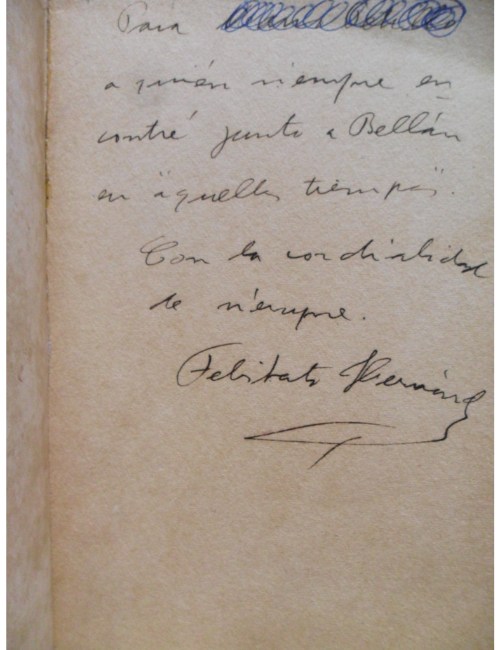 Para
a quién siempre en
contré junto a Bellán
en "aquellos tiempos".
Con la cordialidad
de siempre.
Felisberto Hernández